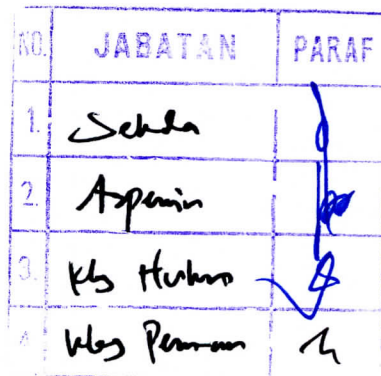 NO. JABATAN PARAF
1. Sekda
2. Aspemin
3. Kbg Hukum
4 Kbg